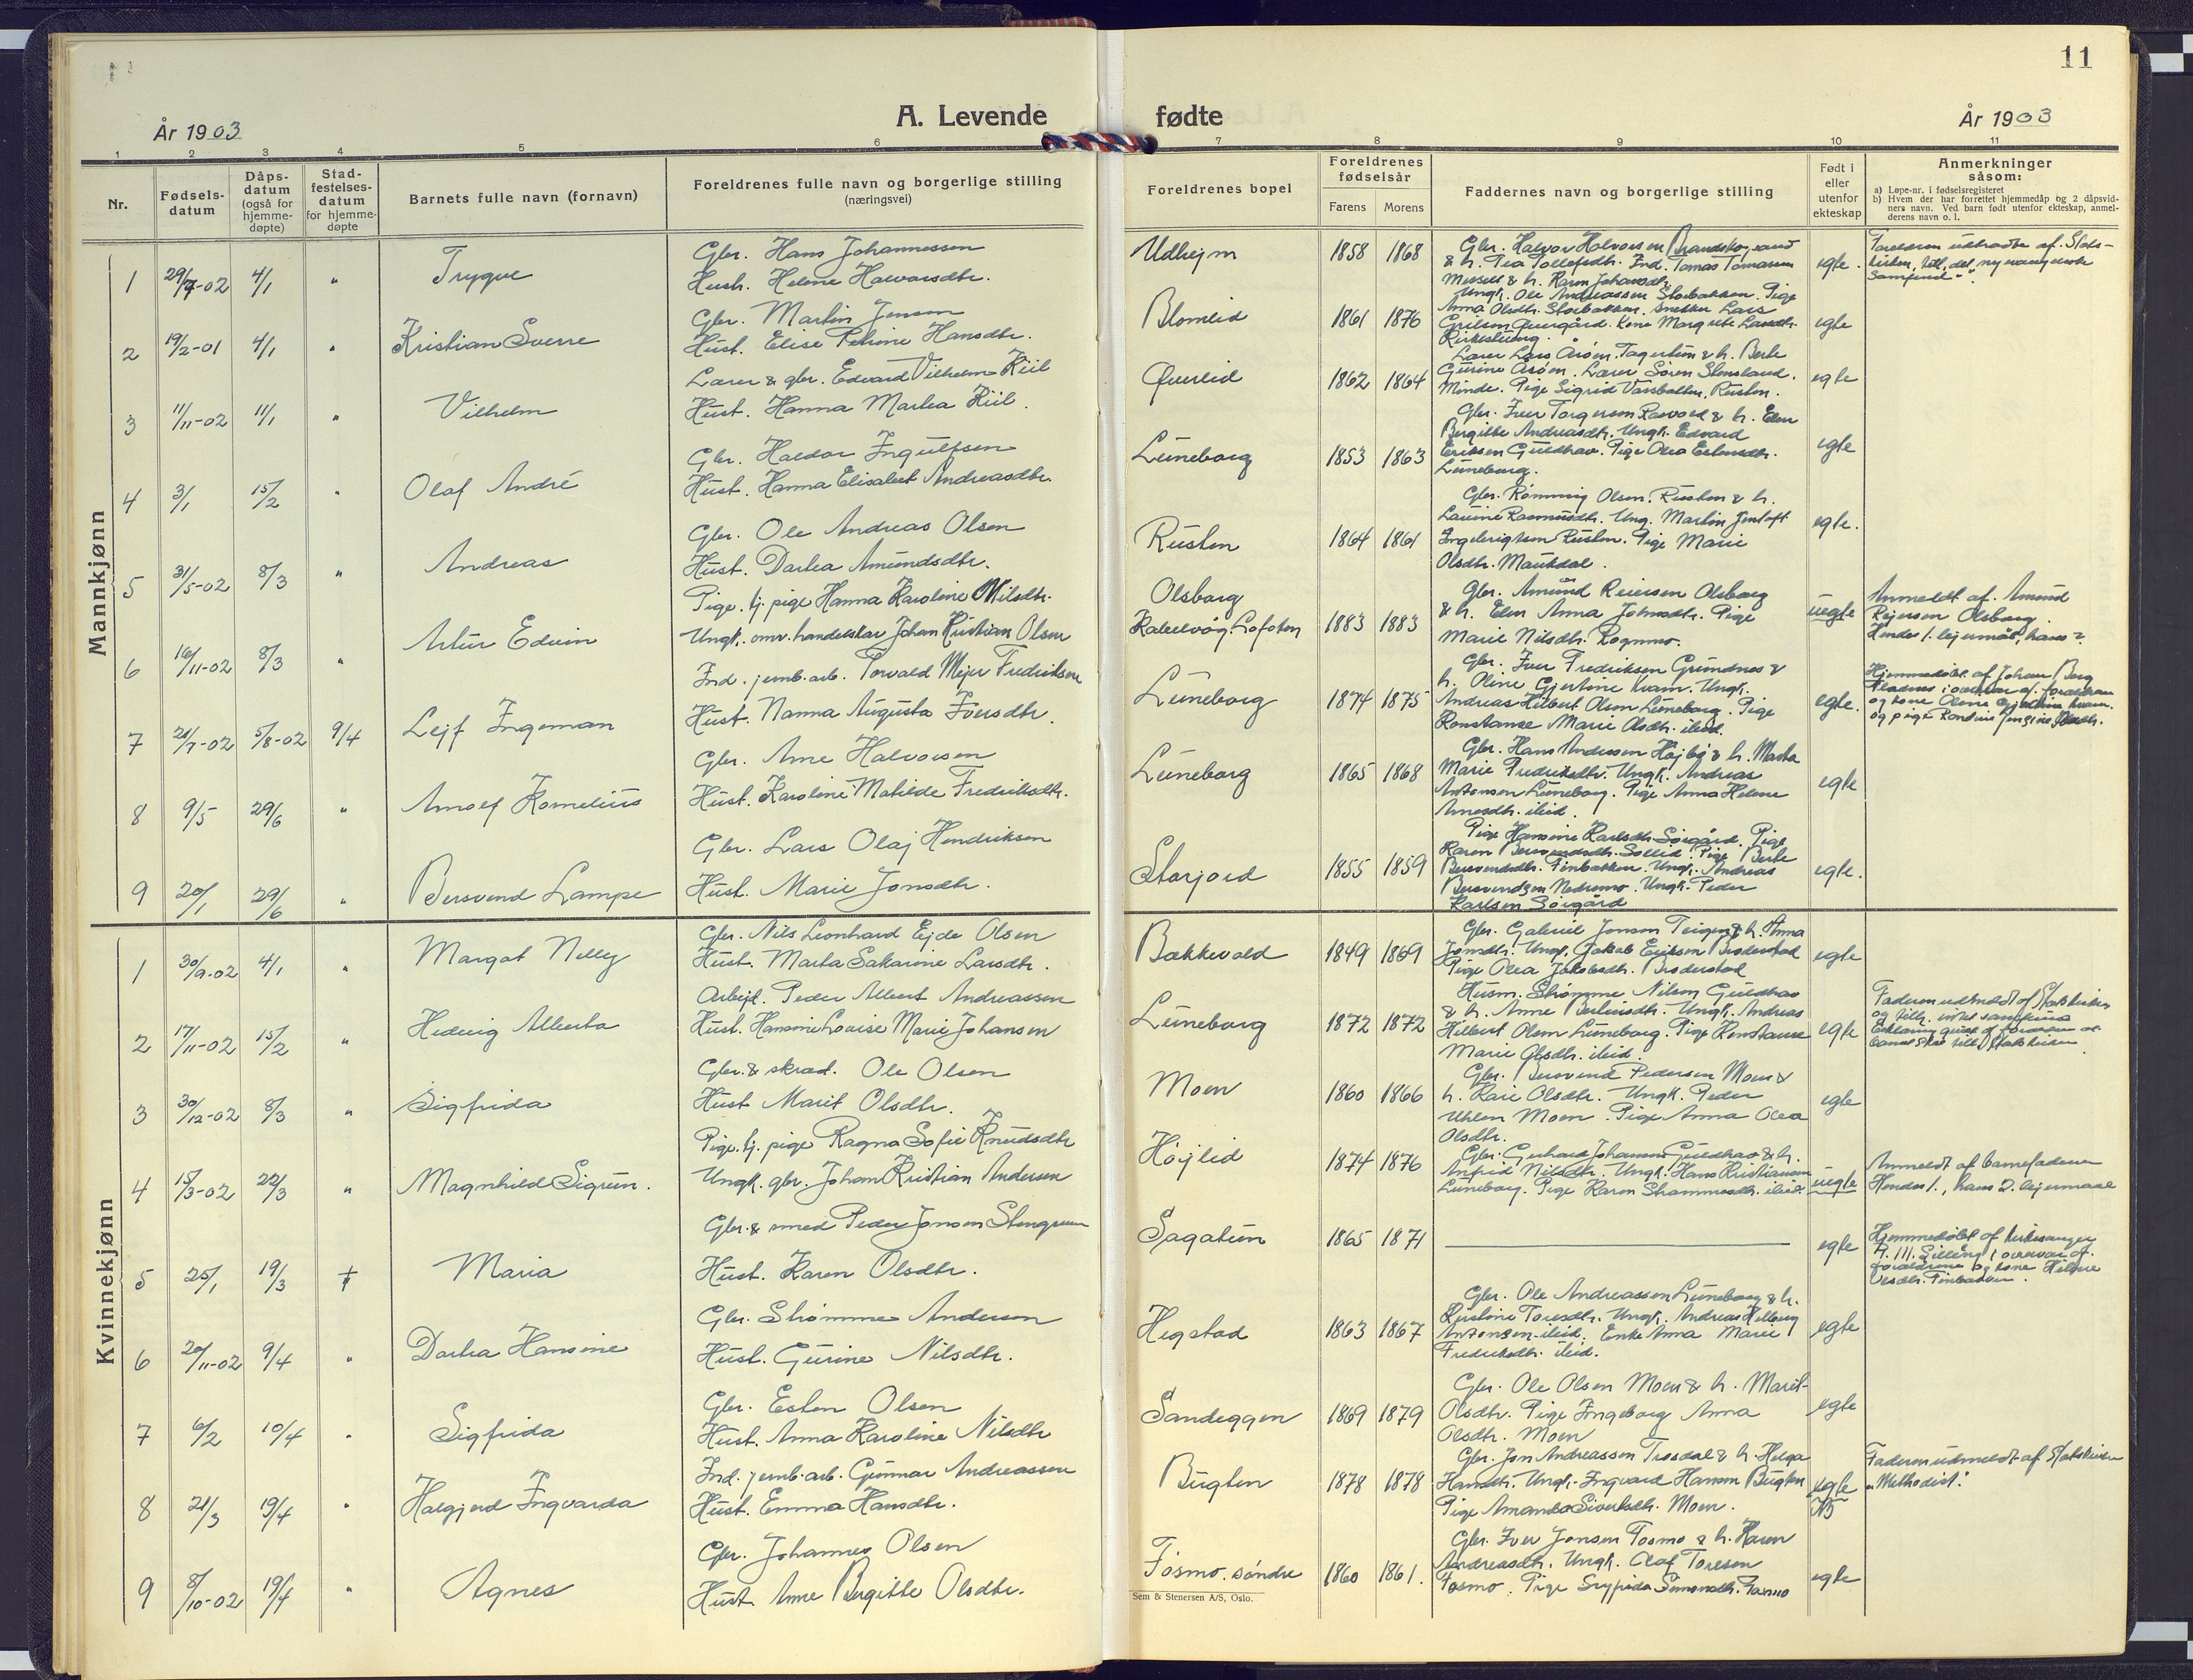 11
År 1903
A. Levende
fødte
År 1903
1 2 3 4 5 6 7 8 9 10 11
Nr.
Fødsels-
datum
Dåps-
datum
(også for
hjemme-
døpte)
Stad-
festelses-
datum
for hjemme-
døpte
Barnets fulle navn (fornavn)
Foreldrenes fulle navn og borgerlige stilling
(næringsvei)
Foreldrenes bopel
Foreldrenes
fødselsår
Farens Morens
Faddernes navn og borgerlige stilling
Født i
eller
utenfor
ekteskap
Anmerkninger
såsom:
a) Løpe-nr. i fødselsregisteret
b) Hvem der har forrettet hjemmedåp og 2 dåpsvid-
ners navn. Ved barn født utenfor ekteskap, anmel-
derens navn o. l.
Mannkjønn
1 29/7-02 4/1 " Trygve
Gbr. Hans Johannessen
Hush. Helene Halvorsdtr.
Udhejm 1858 1868
Gbr. Halvor Halvorsen
& h. Pea Tollefsdtr. Ind. Tomas Tomassen
h. Karen Johansdtr.
egte.
2 19/2-01 4/1 " Kristian Sverre
Gbr. Martin Jenson
Hust. Elise Petrine Hansdtr.
Blomlid 1861 1876
Ungk. Ole Andreassen Storbakken. Pige
Anna Olsdtr. Storbakken. Snekker Lars
Kone Margrete Larsdtr.
Kirkesteung.
egte
3 11/11-02 11/1 " Vilhelm
Lærer & gbr. Edvard Vilhelm Kiil
Hust. Hanna Marlea Kiil.
Øverlid 1862 1864
Lærer Lars Åsøm. & h. Berte
Gurine Åsøm. Lærer Søren Stensland.
Minde. Pige Sigrid Rusten.
egte
4 3/1 15/2 " Olaf André
Gbr. Haldor Ingulfsen
Hust. Hanna Elisabet Andreasdtr.
Luneborg 1853 1863
Gbr. Iver Torgersen & h. Elen
Bergitte Andreasdtr. Ungk. Edvard
Eriksen Guldhav. Pige Olea Erlensdtr.
Luneborg.
egte
5 31/5-02 8/3 " Andreas
Gbr. Ole Andreas Olsen
Hust. Dartea Amundsdtr.
Rusten 1864 1861
Gbr. Rønning Olsen. Rusten & h.
Laurine Rasmusdtr. Ung. Martin Jentoft
Ingebrigtsen Rusten. Pige Marie
Olsdtr. Maukdal.
egte.
6 16/11-02 8/3 " Artur Edvin
Pige. tj. pige Hanna Karoline Nilsdtr.
Ungk. omr. handelskar Johan Kristian Olsen
Olsborg
Kabelvåg Lofoten 1883 1883
Gbr. Amund Reiersen Olsborg
& h. Elen Anna Johnsdtr. Pige
Marie Nilsdtr. Rognmo.
uegte
Anmeldt af. Amund
Rejersen Olsborg.
Hendes 1. lejermål, hans 2.
7 21/7-02 5/8-02 9/4 Lejf Ingeman
Ind. jernb. arb. Torvald Mejer Fredriksen
Hust. Nanna Augusta Iversdtr.
Luneborg 1874 1875
Gbr. Iver Fredriksen Grundnes &
h. Oline Gjertine Kvam. Ungk.
Andreas Hilbert Olsen Luneborg. Pige
Konstanse Marie Olsdtr. ibid.
egte.
Hjemmedøbt af Johan Berg
i overvær af. forældrene
og kone Oline Gjertine Kvam.
og pige
8 9/5 29/6 " Arnolf Kornelius
Gbr. Arne Halvorsen
Hust. Karoline Matilde Fredriksdtr.
Luneborg 1865 1868
Gbr. Hans Andersen Højbø & h. Marta
Marie Fredriksdtr. Ungk. Andreas
Antonsen Luneborg. Pige Anna Helene
Arnesdtr. ibid.
egte
9 20/1 29/6 " Bersvend Lampe
Gbr. Lars Olaj Hendriksen
Hust. Marie Jonsdtr.
Storjord 1855 1859
Pige Hansine Karlsdtr. Sørgård. Pige
Karen Bersvendsdtr. Sollid. Pige Berte
Bersvendsdtr. Finbakken. Ungk. Andreas
Bersvendsen Nedremo. Ungk. Peder
Karlsen Sørgård
egte.
Kvinnekjønn
1 30/9-02 4/1 " Margot Nelly
Gbr. Nils Leonhard Ejde Olsen
Hust. Marta Sakarine Larsdtr.
Bakkevold 1849 1869
Gbr. Gabriel Jonson Teigen & h. Anna
Jonsdtr. Ungk. Jakob Eriksen Broderstad
Pige Olea Jakobsdtr. Broderstad
egte
2 17/11-02 15/2 " Hedvig Alberta
Arbejd. Peder Albert Andreassen
Hust. Hansine Lovise Marie Johansen
Luneborg 1872 1872
Husm. Strømme Nilsen Guldhav
& h. Anne Berlinsdtr. Ungk. Andreas
Hilbert Olsen Luneborg. Pige Konstanse
Marie Olsdtr. ibid.
egte
Faderen udmeldt af Statskirken
3 30/12-02 8/3 " Sigfrida
Gbr. & skræd. Ole Olsen
Hust Marit Olsdtr.
Moen 1860 1866
Gbr. Bersvend Pedersen Moen &
h. Kari Olsdtr. Ungk. Peder
Uhlen Moen. Pige Anna Olea
Olsdtr.
egte
4 15/3-02 22/3 " Magnhild Sigrun.
Pige. tj. pige Ragna Sofie Knudsdtr
Ungk. gbr. Johan Kristian Andersen
Højlid 1874 1876
Gbr. Gerhard Johansen Guldhav & h.
Anfrid Nilsdtr. Ungk. Hans Kristiansen
Luneborg. Pige Karen Strømmesdtr. ibid.
uegte
Anmeldt af barnefaderen
Hendes 1., hans 2. lejermaal
5 25/1 19/3 † Maria
Gbr. & smed Peder Jonson Stengruen
Hust. Karen Olsdtr.
Sagatun 1865 1871
egte
Hjemmedøbt af kirkesanger
i overvær af.
forældrene og kone Heline
Olsdtr. Finbakken.
6 20/11-02 9/4 " Dartea Hansine
Gbr. Strømme Anderson
Hust. Gurine Nilsdtr.
Hegstad 1863 1867
Gbr. Ole Andreassen Luneborg & h.
Kirstine Toresdtr. Ungk. Andreas Hilberg
Antonsen ibid. Enke Anna Marie
Fredriksdtr. ibid.
egte
7 6/2 10/4 " Sigfrida
Gbr. Esten Olsen
Hust. Anna Karoline Nilsdtr
Sandeggen 1869 1879
Gbr. Ole Olsen Moen & h. Marit
Olsdtr. Pige Ingeborg Anna
Olsdtr. Moen
egte
8 21/3 19/4 " Halgjerd Ingvarda
Ind. jernb. arb. Gunnar Andreassen
Hust. Emma Hansdtr.
Bugten 1878 1878
Gbr. Jon Andreassen Trosdal & h. Helga
Hansdtr. Ungk. Ingvard Hansen Bugten
Pige Amanda Sivertsdtr. Moen.
egte
Faderen udmeldt af Statskirken
"Methodist."
9 8/10-02 19/4 " Agnes
Gbr. Johannes Olsen
Hust. Anne Bergitte Olsdtr.
Fosmo. søndre 1860 1861.
Gbr. Iver Jonsen Fosmo & h. Karen
Andreasdtr. Ungk. Olaf Toresen
Fosmo. Pige Sigfrida Simonsdtr. Fosmo
egte
Sem & Stenersen A/S, Oslo.